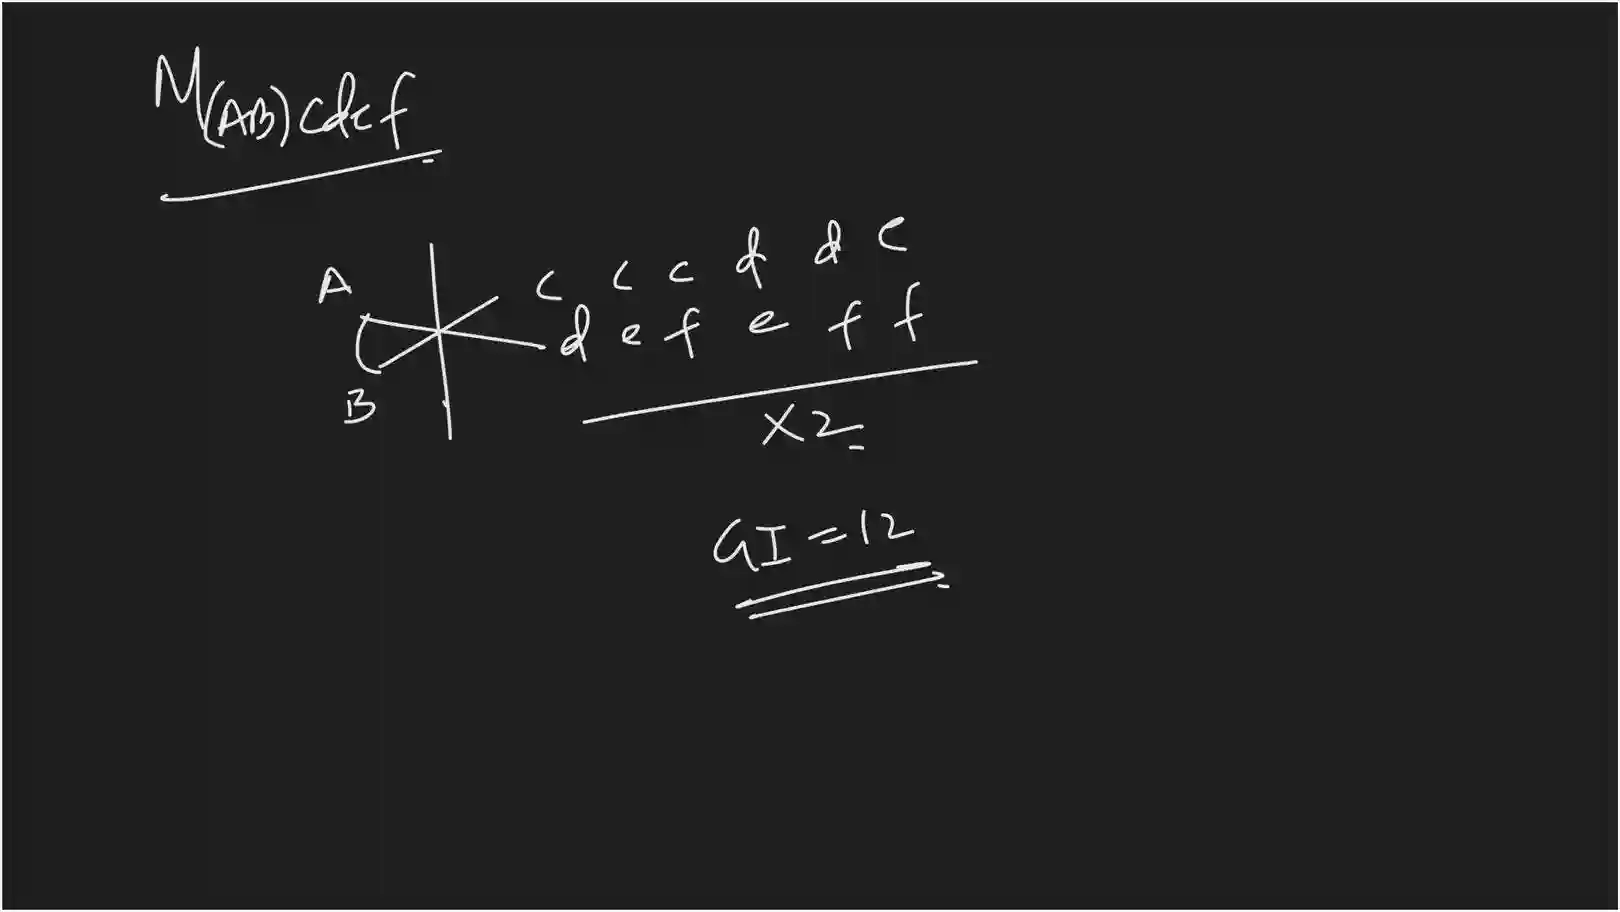 M(AB)cdef
A c c c d d e
d e f e f f
B
×2
GI = 12